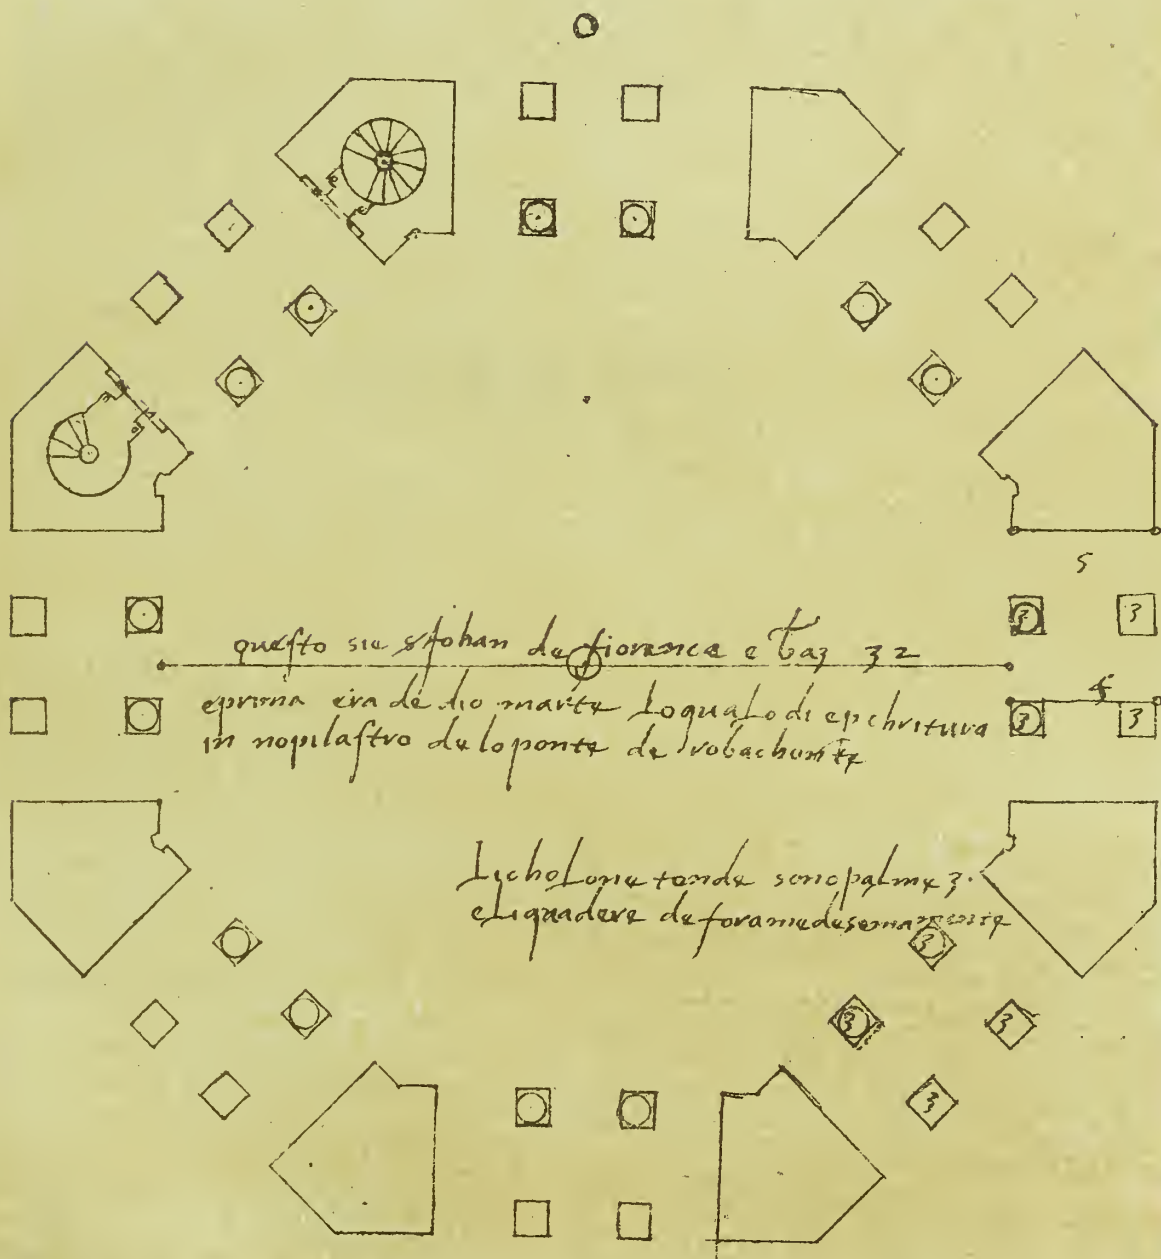 5
3 3
questo sie s Johan de fiorenca e baz 32
4
eprima era de dio marte loqualo di epchritura
3 3
in nopilastro de lo ponte de robachonte
Licholone tonde sono palme 3.
eliquadere de fora medesemamente
3
3 3
3